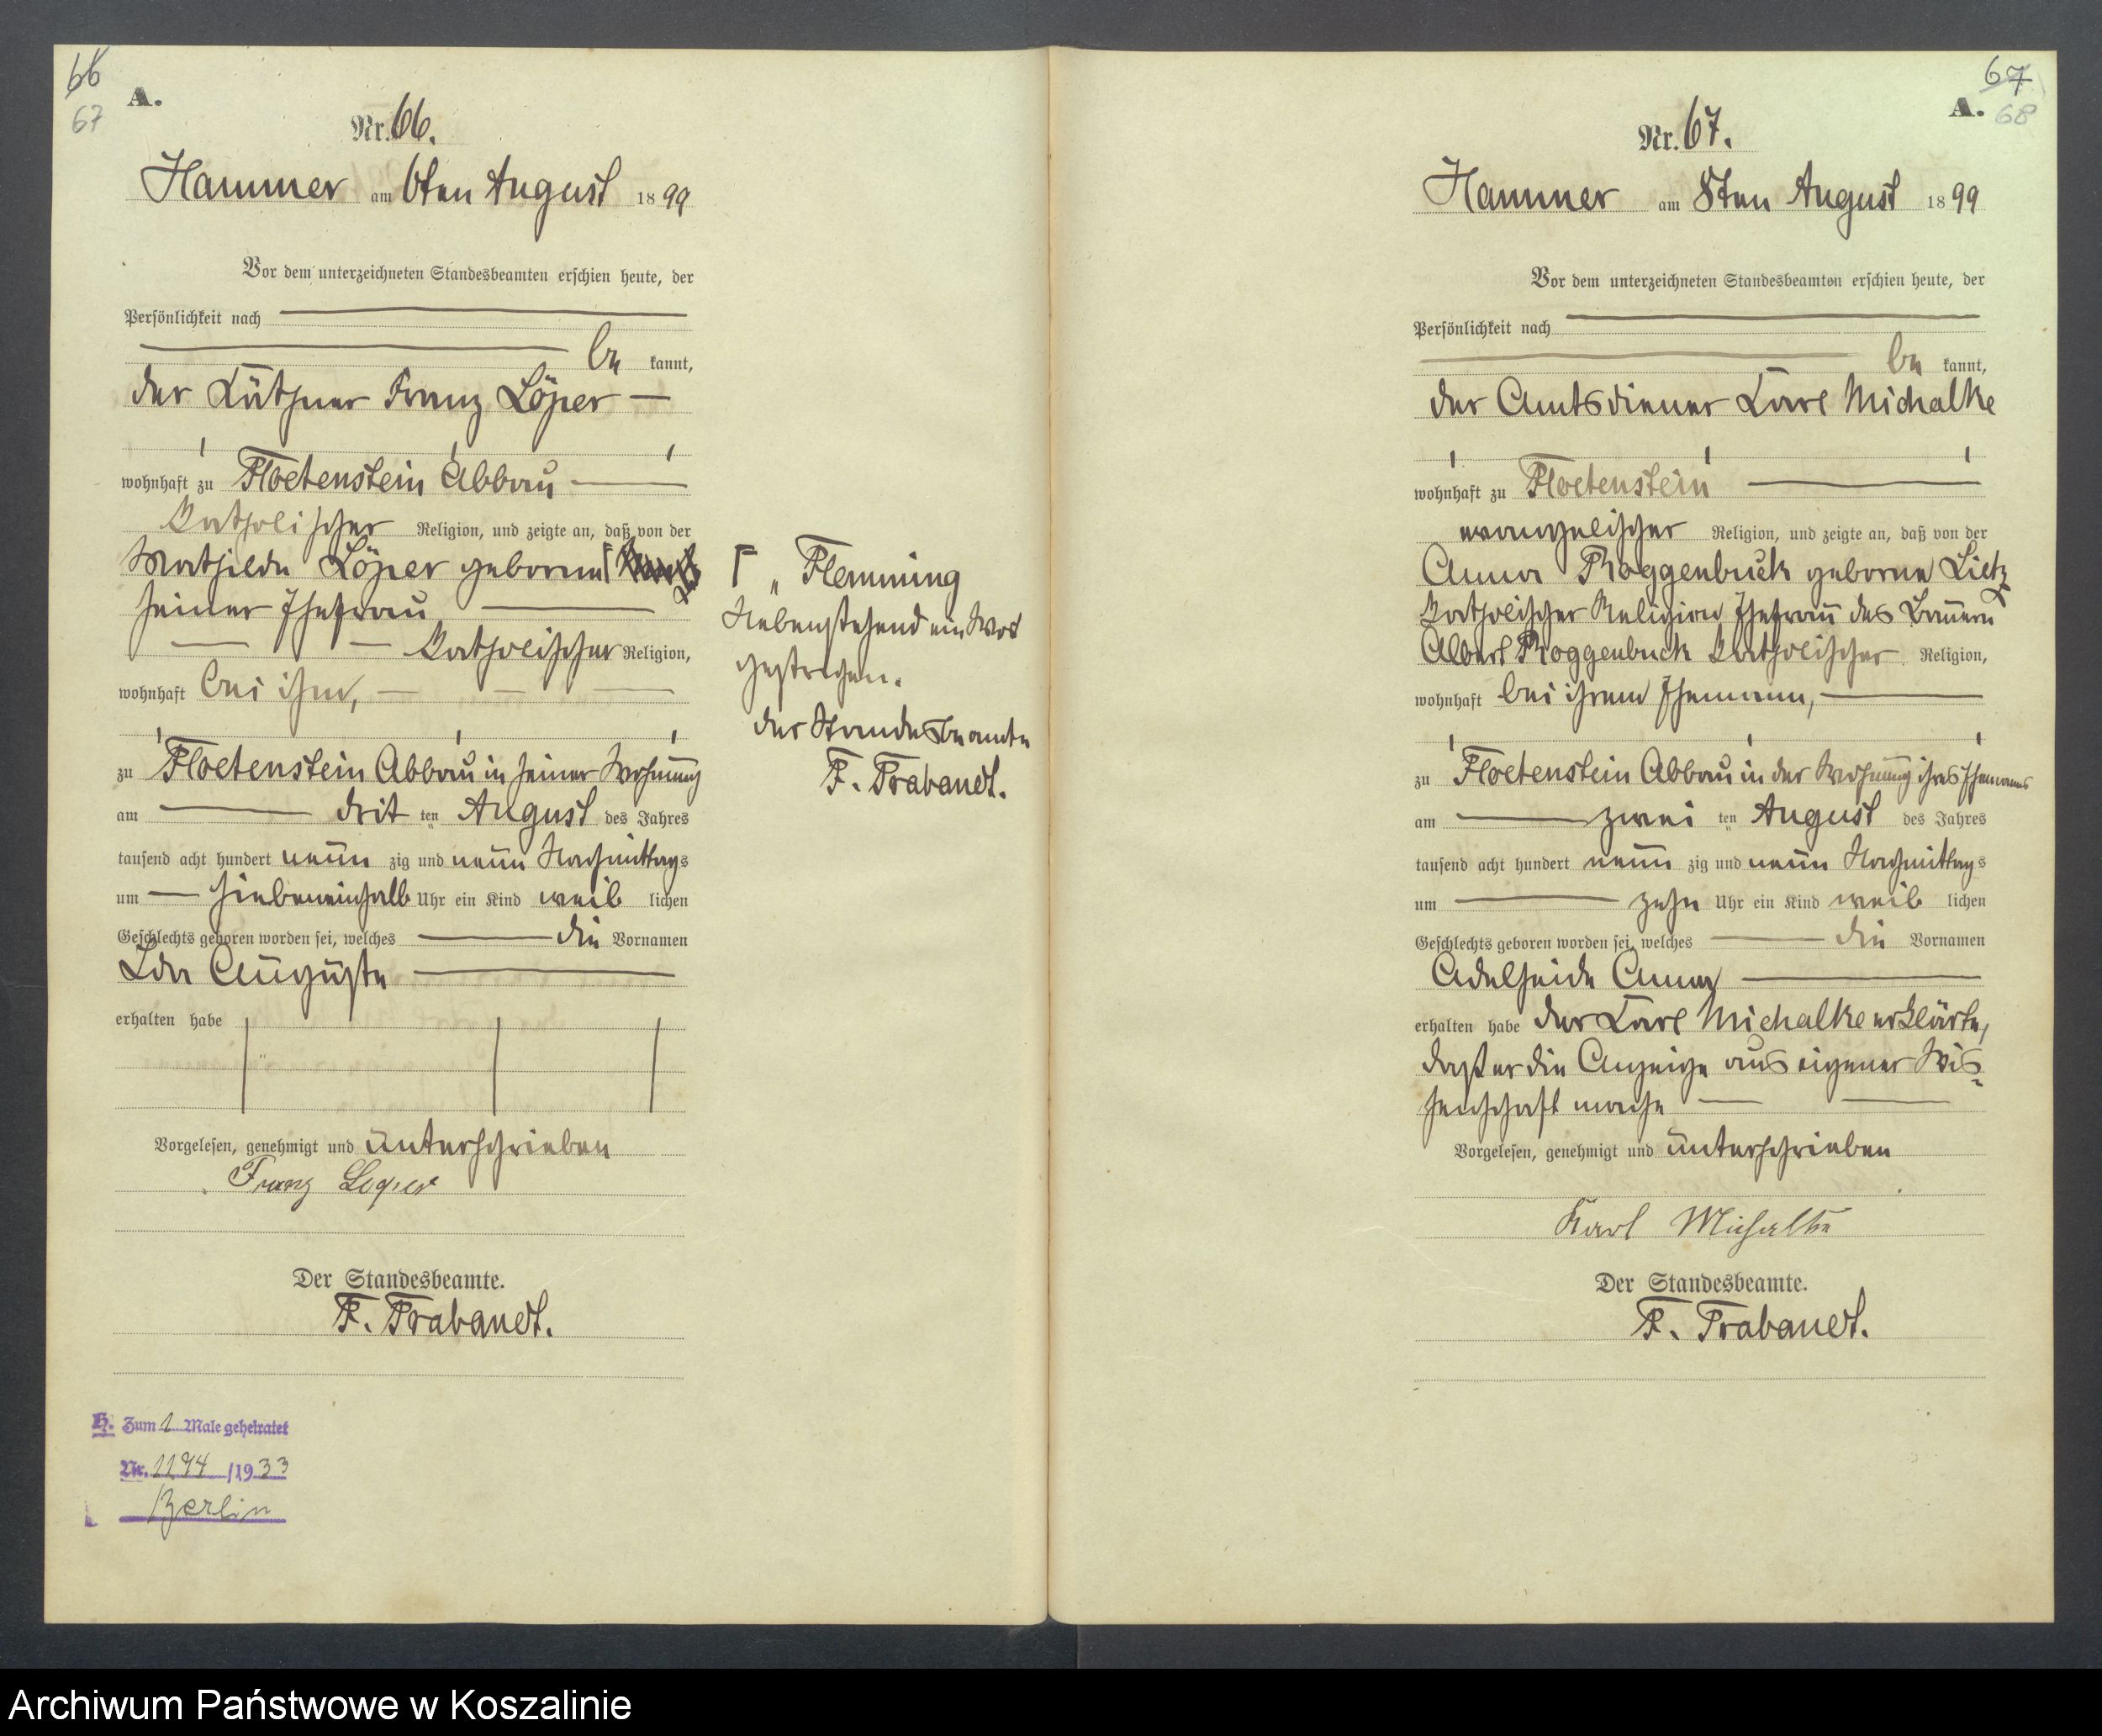 66
67
A.
Nr. 66.
Hammer am 6ten August 1899
Vor dem unterzeichneten Standesbeamten erschien heute, der
Persönlichkeit nach
be kannt,
der Käthner Franz Löper
wohnhaft zu Floetenstein Abbau
katholischer Religion, und zeigte an, daß von der
Mathilde Löper geborene ⌈
seiner Ehefrau
katholischer Religion,
wohnhaft bei ihm,
zu Floetenstein Abbau in seiner Wohnung
am drit ten August des Jahres
tausend acht hundert neun zig und neun Nachmittags
um siebeneinhalb Uhr ein Kind weib lichen
Geschlechts geboren worden sei, welches die Vornamen
Ida Auguste
erhalten habe
Vorgelesen, genehmigt und unterschrieben
Franz Loeper
Der Standesbeamte.
F. Trabandt.
H. Zum 1 Male geheiratet
Nr. 1194 /1933
Berlin
⌈ „ Flemming
Nebenstehend ein Wort
gestrichen.
der Standesbeamte
F. Trabandt.
67
A.
68
Nr. 67.
Hammer am 8ten August 1899
Vor dem unterzeichneten Standesbeamten erschien heute, der
Persönlichkeit nach
be kannt,
der Amtsdiener Karl Michalke
wohnhaft zu Floetenstein
evangelischer Religion, und zeigte an, daß von der
Anna Roggenbuck geborne Lietz
katholischer Religion Ehefrau des Bauern
Albert Roggenbuck katholischer Religion,
wohnhaft bei ihrem Ehemann,
zu Floetenstein Abbau in der Wohnung ihres Ehemanns
am zwei ten August des Jahres
tausend acht hundert neun zig und neun Nachmittags
um zehn Uhr ein Kind weib lichen
Geschlechts geboren worden sei, welches die Vornamen
Adelheide Anna
erhalten habe der Karl Michalke erklärte,
daß er die Anzeige aus eigener Wis-
senschaft mache
Vorgelesen, genehmigt und unterschrieben
Karl Michalke
Der Standesbeamte.
F. Trabandt.
Archiwum Państwowe w Koszalinie